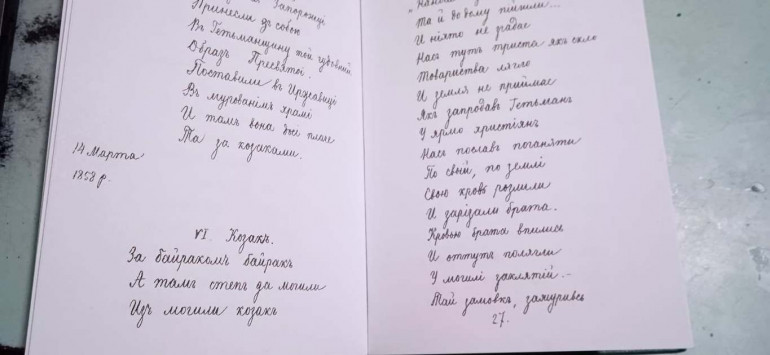 Запорожці
Принесли зъ собою
Въ Гетьманщину той чудовний
Образъ Пресвятої.
Поставили въ Иржавиці
Въ мурованімъ храмі
И тамъ вона досі плаче
Та за козаками.
14 Марта
1858 р.
VI. Козакъ.
За байракомъ байракъ
А тамъ степъ да могили
Изъ могили козакъ
Та й до дому пійшли...
И ніхто не згадає
Насъ тутъ триста якъ скло
Товариства лягло
И земля не приймає
Якъ запродавъ Гетьманъ
У ярмо християнъ
Насъ пославъ поганяти
По своїй, по землі
Свою кровъ розлили
И зарізали брата.
Кровью брата впились
И оттутъ полягли
У могилі заклятій.-
Тай замовкъ, зажуривсь
27.